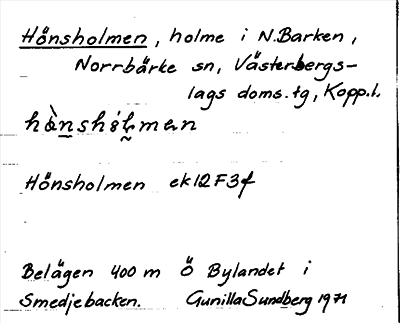 Hönsholmen, holme i N. Barken,
Norrbärke sn, Västerbergs-
lags doms. tg, Kopp. l.
hǜnshólmen
Hönsholmen ek 12 F 3 f
Belägen 400 m Ö Bylandet i
Smedjebacken. Gunilla Sundberg 1971